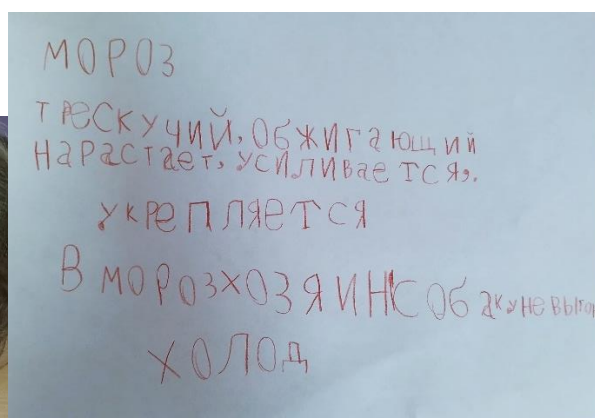 МОРОЗ
ТРЕСКУЧИЙ, ОБЖИГАЮЩИЙ
НАРАСТАЕТ, УСИЛИВАЕТСЯ,.
УКРЕПЛЯЕТСЯ
В МОРОЗ ХОЗЯИН СОБАКУ НЕ ВЫГОН
ХОЛОД